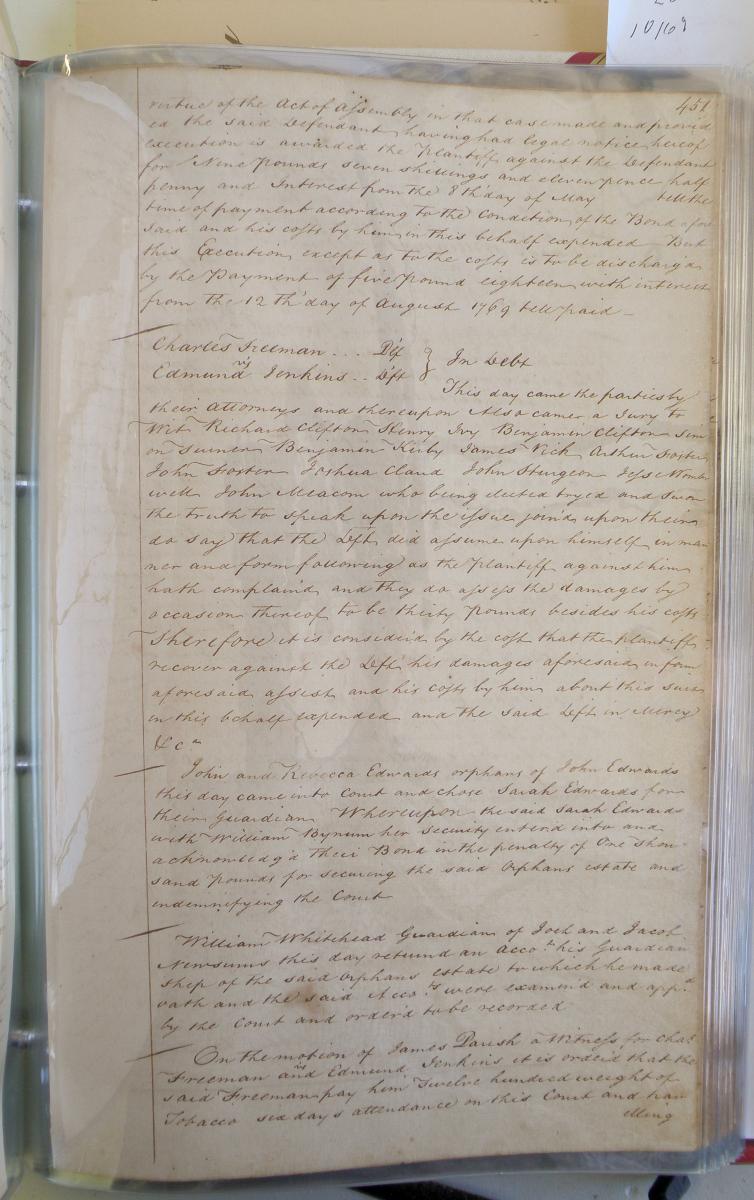 10/69
451
virtue of the Act of Assembly in that case made and provid
ed the said Defendant having had legal notice hereof
execution is awarded the Plantiff against the Defendant
for Nine Pounds seven shillings and eleven pence half
penny and Interest from the 8th day of May till the
time of payment according to the Condition of the Bond afore
said and his costs by him in this behalf expended But
this Execution except as to the costs is to be discharg'd
by the Payment of five Pound eighteen with interest
from the 12th day of August 1769 till paid
Charles Freeman ... Plf
vs } In Debt
Edmund Jenkins .. Deft
This day came the parties by
their Attorneys and thereupon Also came a Jury to
Wit Richard Clifton Henry Ivy Benjamin Clifton Sim
on Turner Benjamin Kirby James Vick Arthur Foster
John Foster Joshua Claud John Sturgeon Jesse Womb
well John Meacom who being elected tryed and sworn
the truth to speak upon the issue join'd upon their
do say that the Deft did assume upon himself in man
ner and form following as the Plantiff against him
hath complain'd and they do assess the damages by
occasion thereof to be thirty Pounds besides his costs
Therefore it is consider'd by the cost that the plantiff
recover against the Deft his damages aforesaid in form
aforesaid assist and his costs by him about this suit
in this behalf expended and the said Deft in Mercy
&ca
John and Rebecca Edwards orphans of John Edwards
this day came into Court and chose Sarah Edwards for
their Guardian Whereupon the said Sarah Edwards
with William Bynum her security enterd into and
acknowledg'd their Bond in the penalty of One thou
sand Pounds for securing the said Orphans estate and
indemnifying the Court
William Whitehead Guardian of Joel and Jacob
Newsums this day returnd an Accot his Guardian
ship of the said Orphans estate to which he made
oath and the said Accots were examin'd and appd
by the Court and order'd to be recorded
On the motion of James Parish a Witness for Chas
Freeman vs and Edmund Jenkins it is order'd that the
said Freeman pay him Twelve hundred weight of
Tobacco six days attendance on this Court and tra
velling